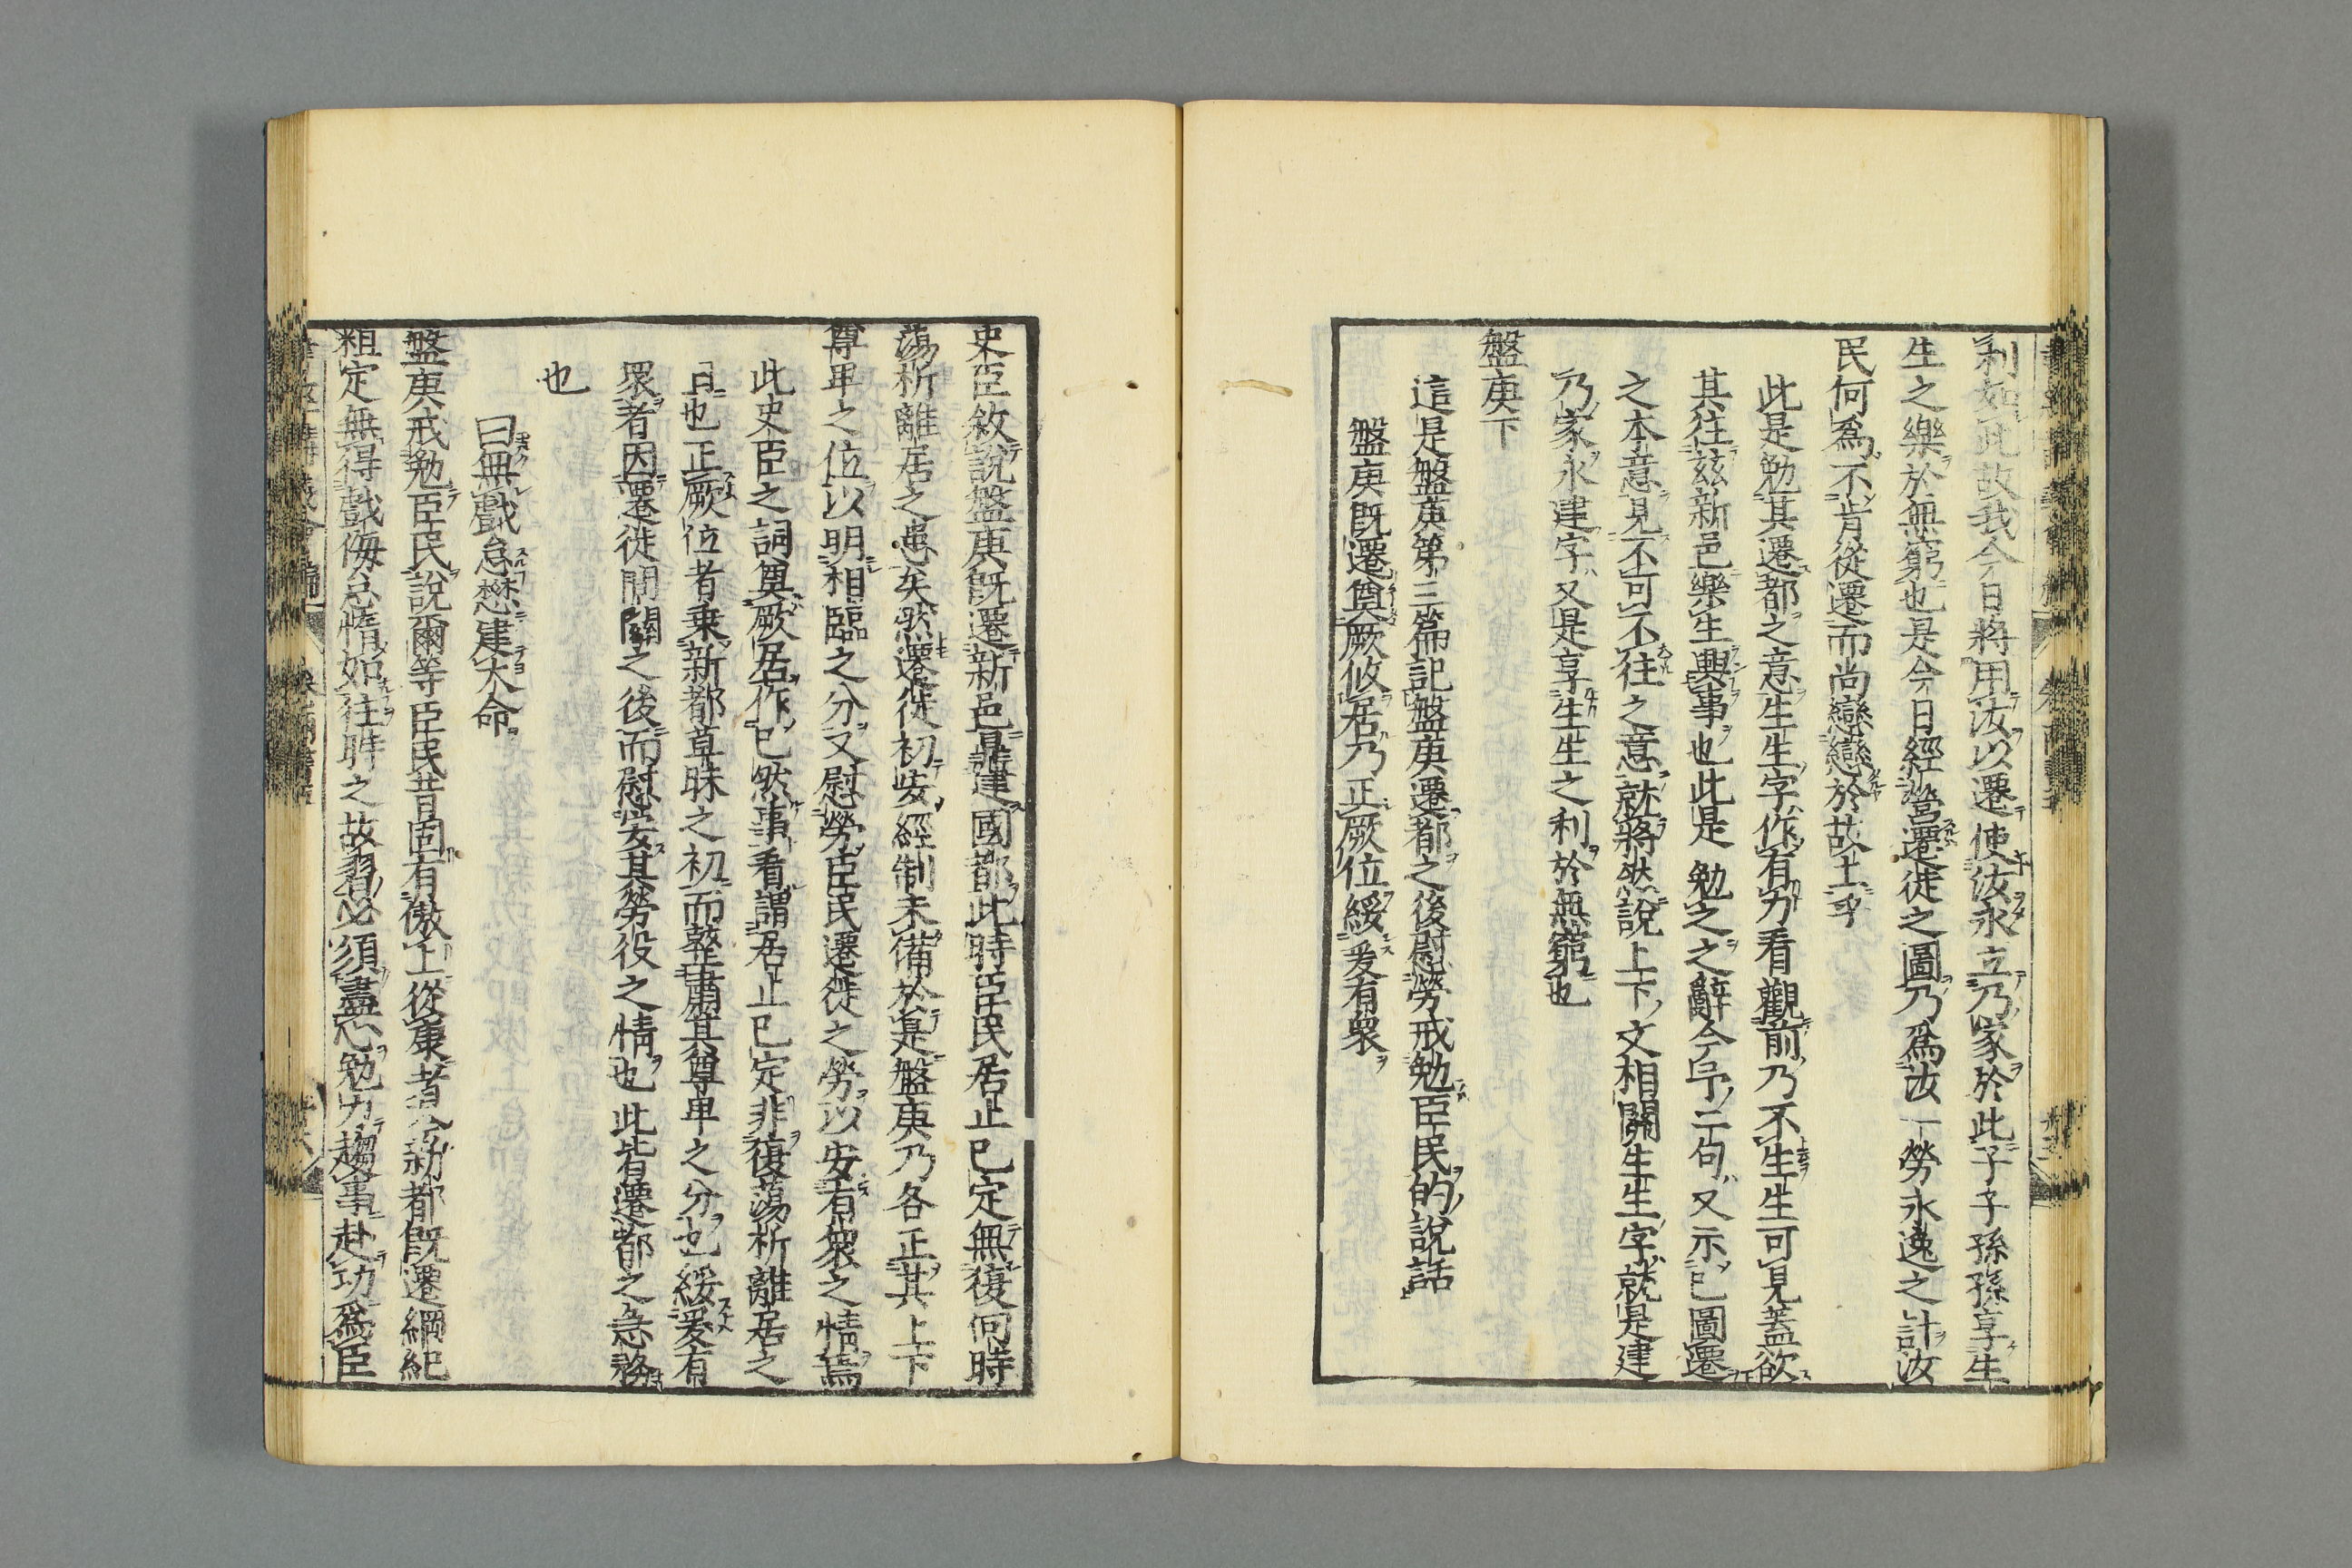 利如此故我今日將用汝以遷使汝永立乃家於此子子孫孫享生
生之樂於無窮也是今日經營遷徙之圖乃爲汝一勞永逸之計汝
民何爲不肯從遷而尚戀戀於故土乎
此是勉其遷都之意生生字作有力看觀前乃不生生可見蓋欲
其往茲新邑樂生興事也此是勉之之辭今予二句又示已圖遷
之本意見不可不往之意就將然說上下文相關生生字就是建
乃家永建字又是享生生之利於無窮也
盤庚下
這是盤庚第三篇記盤庚遷都之後慰勞戒勉臣民的說話
盤庚既遷奠厥攸居乃正厥位綏爰有衆
史臣敘說盤庚既遷新邑建國都此時臣民居止已定無復向時
蕩析離居之患矣然遷徙初發經制未備於是盤庚乃各正其上下
尊卑之位以明相臨之分又慰勞臣民遷徙之勞以安有衆之情焉
此史臣之詞奠厥居作已然事看謂居止已定非復蕩析離居之
日也正厥位者乗新都草昧之初而整肅其尊卑之分也綏爰有
衆者因遷徙間關之後而慰安其勞役之情也此皆遷都之急務
也
曰無戲怠懋建大命
盤庚戒勉臣民說爾等臣民昔固有傲上從康者今新都既遷綱紀
粗定無得戲侮怠惰如往時之故習必須盡心勉力趨事赴功爲臣